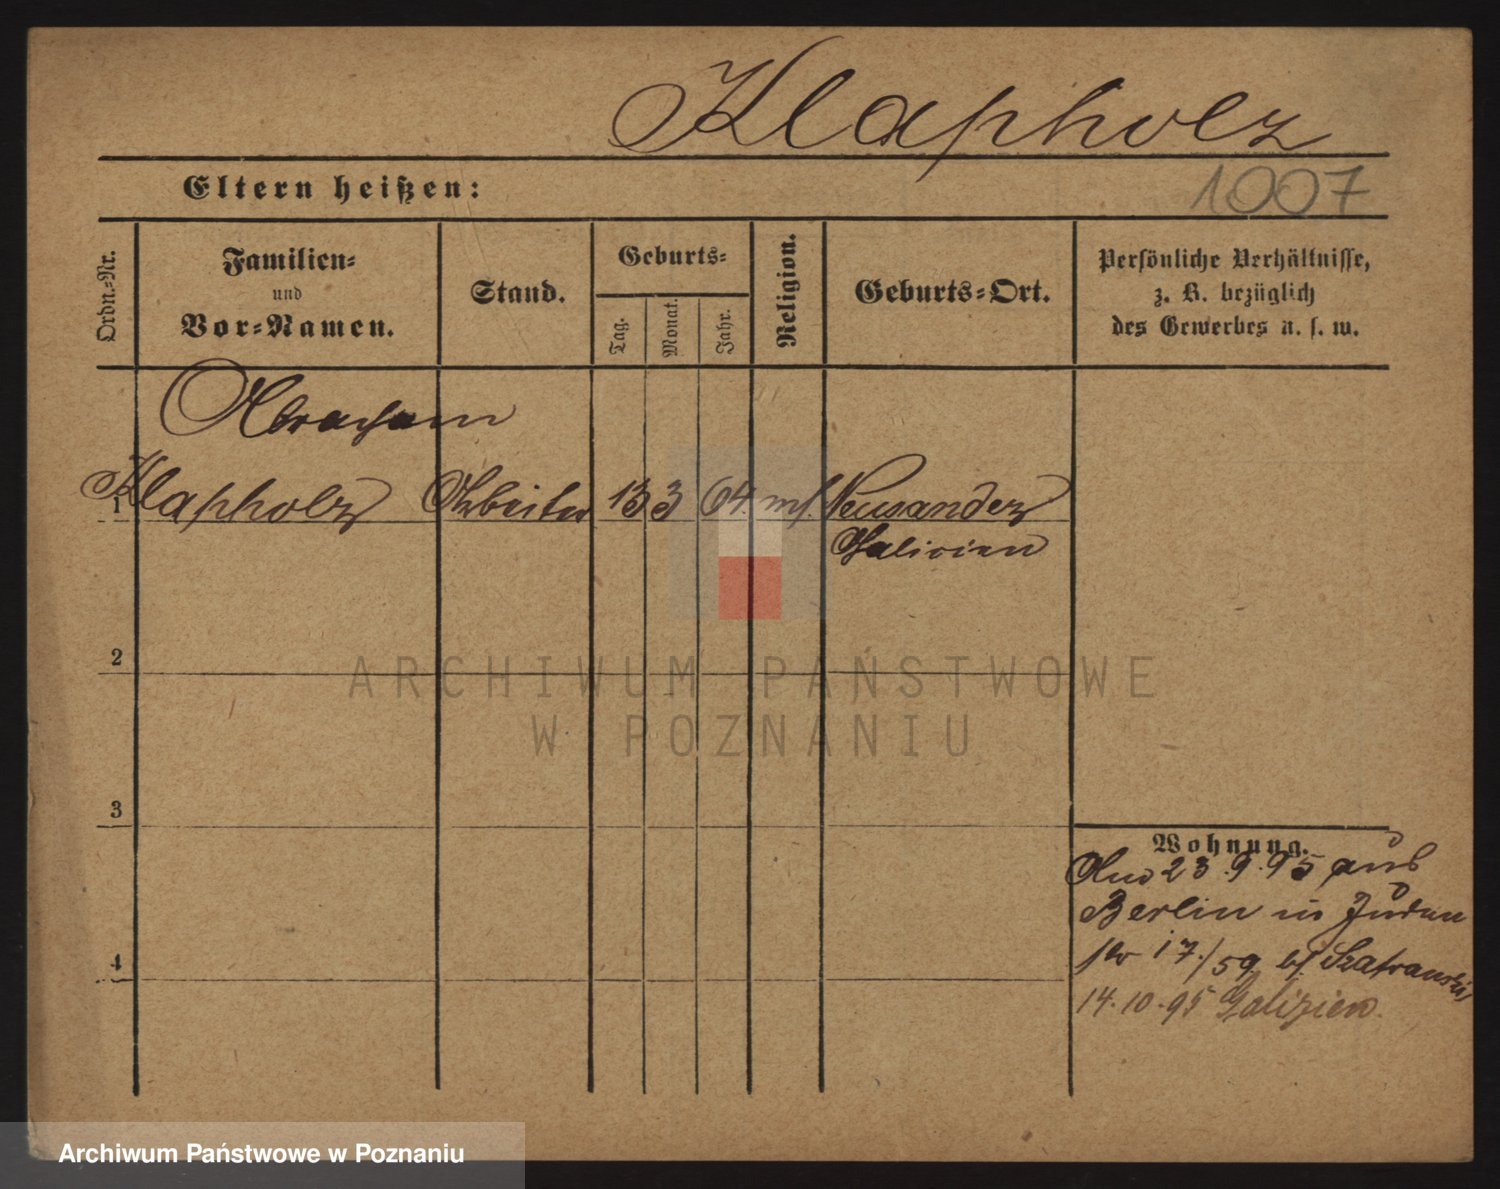 Klapholz
Eltern heißen:
1007
Ordn.-Nr.
Familien-
und
Vor-Namen.
Stand.
Geburts-
Tag.
Monat.
Jahr.
Religion.
Geburts-Ort.
Persönliche Verhältnisse,
z. B. bezüglich
des Gewerbes u. s. w.
Abraham
1 Klapholz Arbeiter 13 3 64 Neusandez
Galizien
2
ARCHIWUM PAŃSTWOWE
W POZNANIU
3
Wohnung.
23.9.95 aus
Berlin in Juden
str 17./59 bei Szafranski
4
14.10.95 Galizien.
Archiwum Państwowe w Poznaniu